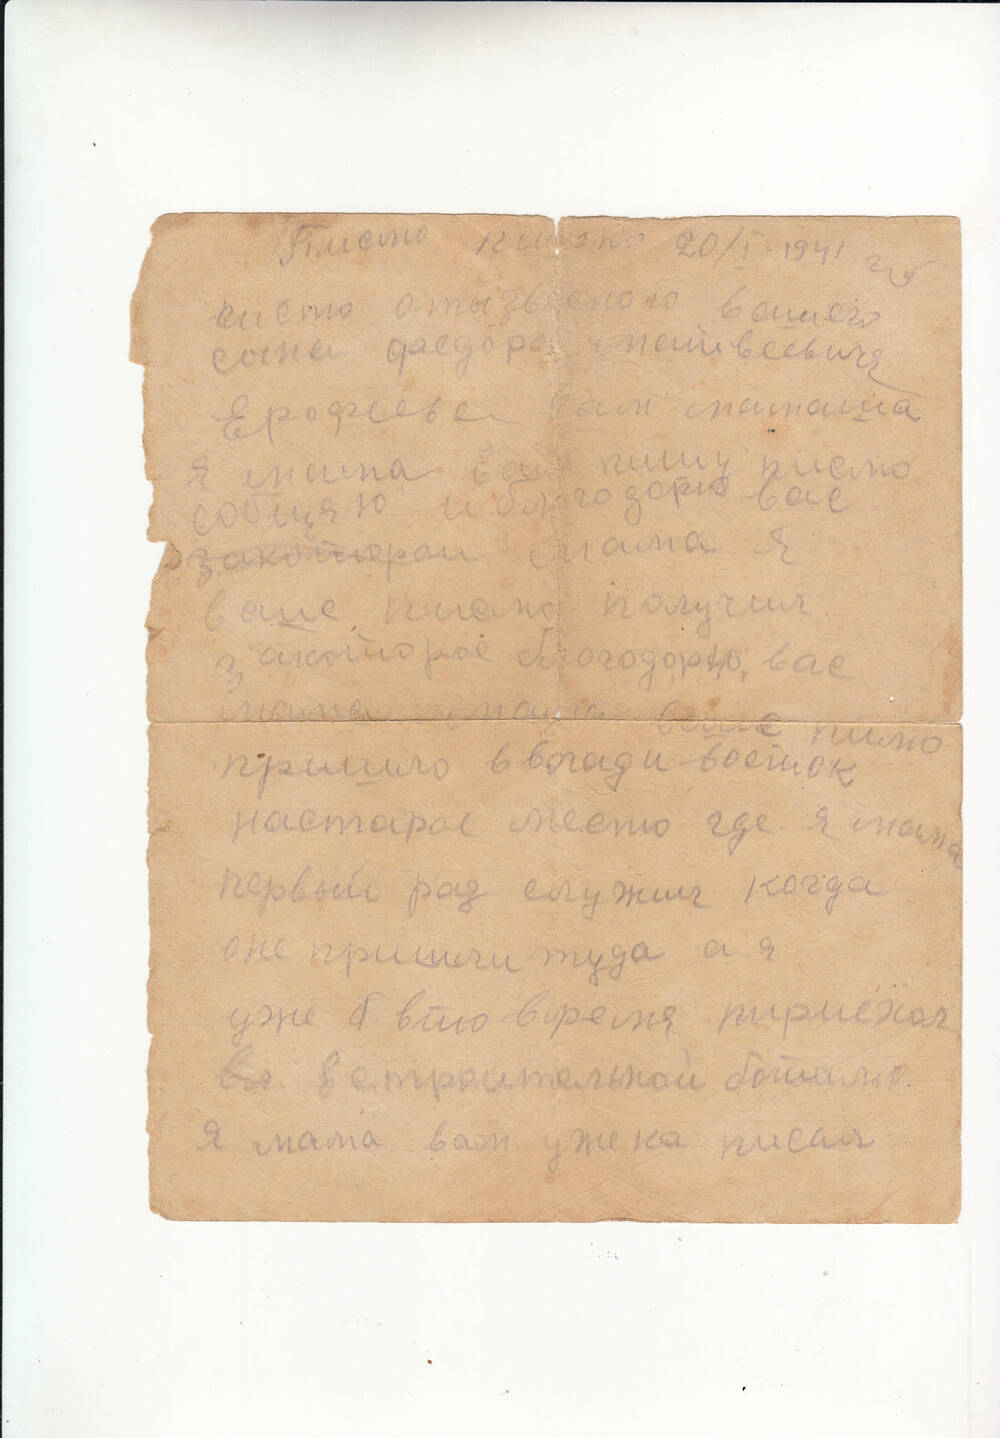 Писмо писано 20/I-1941 г
писмо отызвесного вашего
сына федора матвеевичя
Ерофеева вам мамаша
я мама вам пишу писмо
собщяю и блогодорю вас
закоторои мама я
ваше писмо получил
закоторое блогодорю вас
мама мама ваше пимо
пришло ввлади восток
настарое место где я мама
первый раз служил когда
оне пришли туда а я
уже б вто время приехол
в строительной боталю
я мама вам уже ка писал